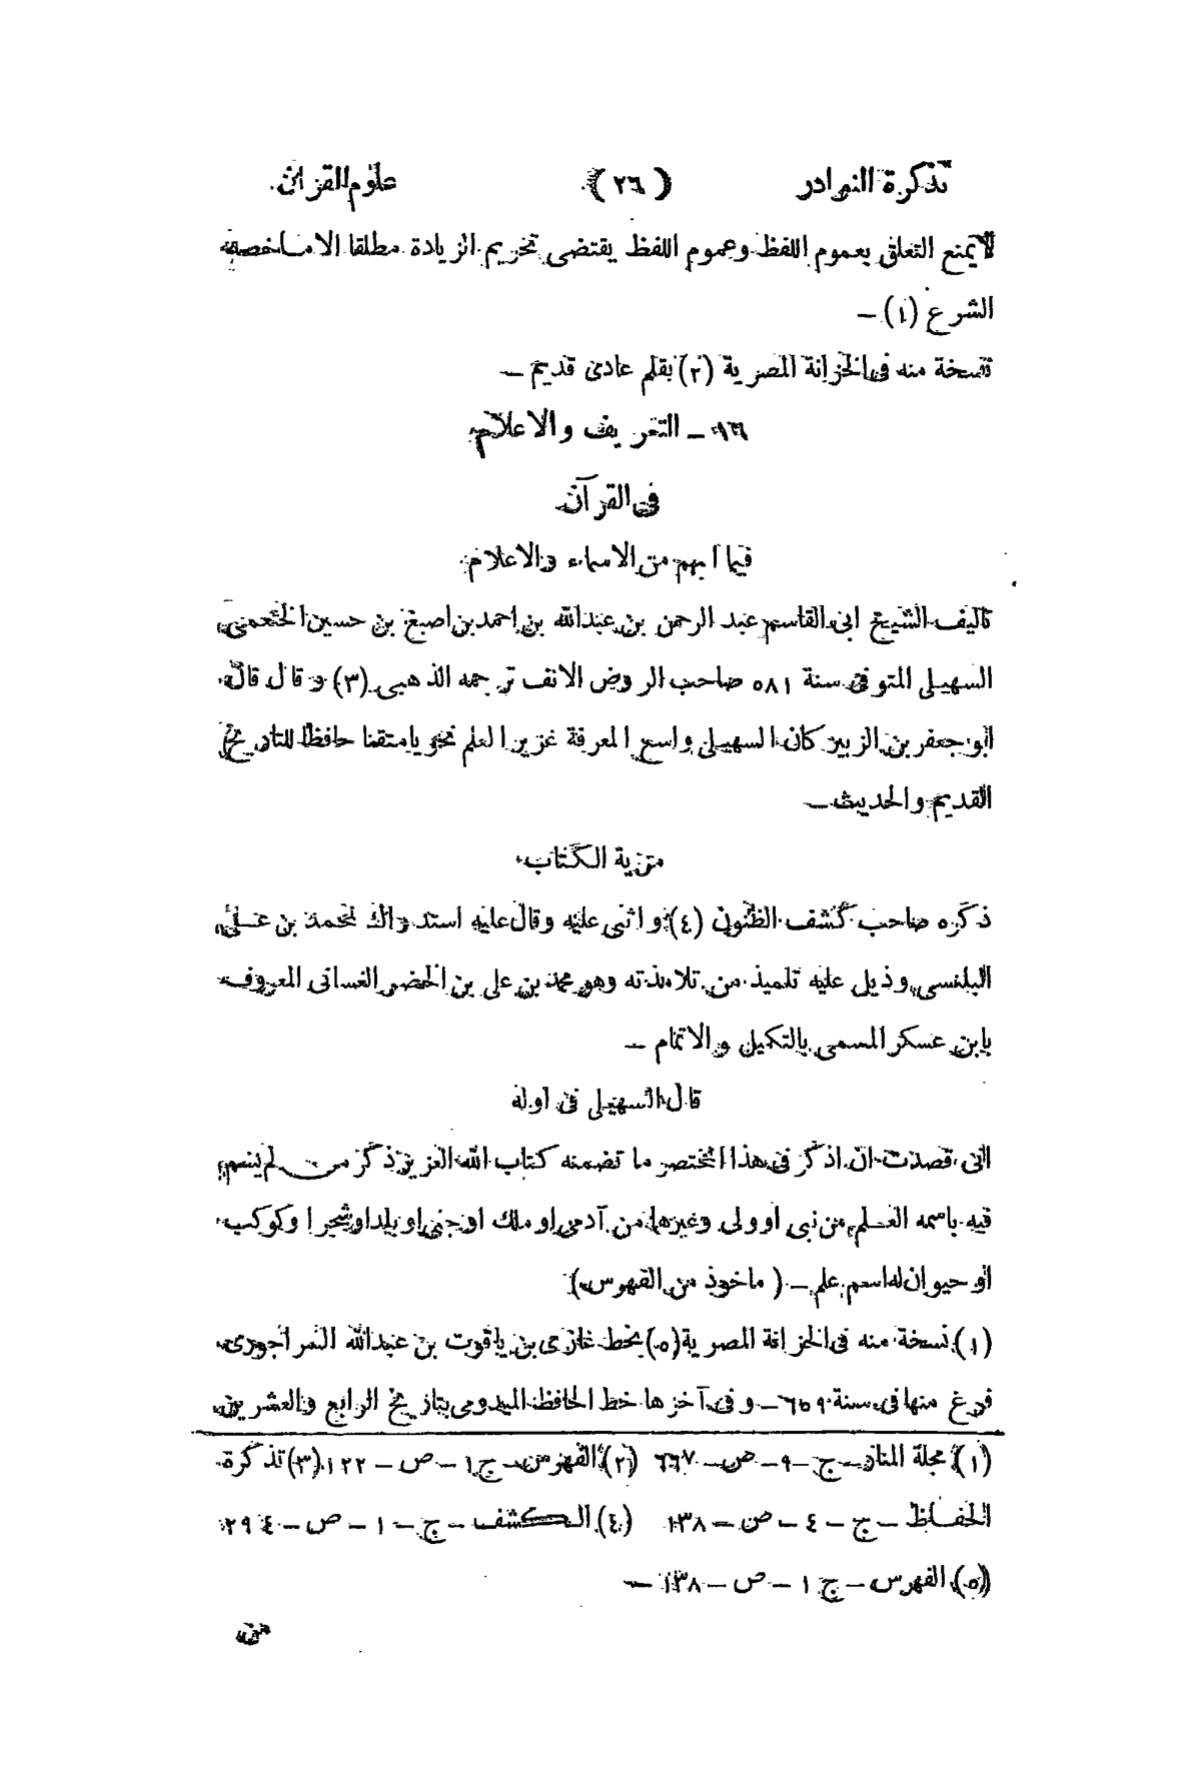 تذكرة النوادر (٢٦) علوم القرآن
لا يمنع التعلق بعموم اللفظ وعموم اللفظ يقتضى تحريم الزيادة مطلقا الا ما خصه
الشرع (١) –
نسخة منه فى الخزانة المصرية (٢) بقلم عادى قديم –
– التعريف والاعلام
فى القرآن
فيما ابهم من الاسماء والاعلام
تاليف الشيخ ابى القاسم عبد الرحمن بن عبد الله بن احمد بن اصبغ بن حسين الخثعمى
السهيلى المتوفى سنة ٥٨١ صاحب الروض الانف ترجمه الذهبى (٣) و قال قال
ابو جعفر بن الزبير كان السهيلى واسع المعرفة غزير العلم نحويا متقنا حافظا للتاريخ
القديم والحديث –
مزية الكتاب
ذكره صاحب كشف الظنون (٤) واثنى عليه وقال عليه استدراك لمحمد بن على
البلنسى وذيل عليه تلميذ من تلامذته وهو محمد بن على بن الخضر الغسانى المعروف
بابن عسكر المسمى بالتكميل والاتمام –
قال السهيلى فى اوله
انى قصدت ان اذكر فى هذا المختصر ما تضمنه كتاب الله العزيز ذكر من لم يسم
فيه باسمه العلم من نبى او ولى وغيرهما من آدمى او ملك او جنى او بلد او شجر او كوكب
او حيوان له اسم علم – (ماخوذ من الفهرس)
(١) نسخة منه فى الخزانة المصرية (٥) بخط غازى بن ياقوت بن عبد الله السراجوى
فرغ منها فى سنة ٦٥٩ – وفى آخرها خط الحافظ الميدومى بتاريخ الرابع والعشرين
(١) مجلة المنار – ج – ٩ – ص – ٦٦٧ (٢) الفهرس – ج ١ – ص – ١٢٢ (٣) تذكرة
الحفاظ – ج – ٤ – ص – ١٣٨ (٤) الكشف – ج – ١ – ص – ٢٩٤
(٥) الفهرس – ج ١ – ص – ١٣٨ –
من